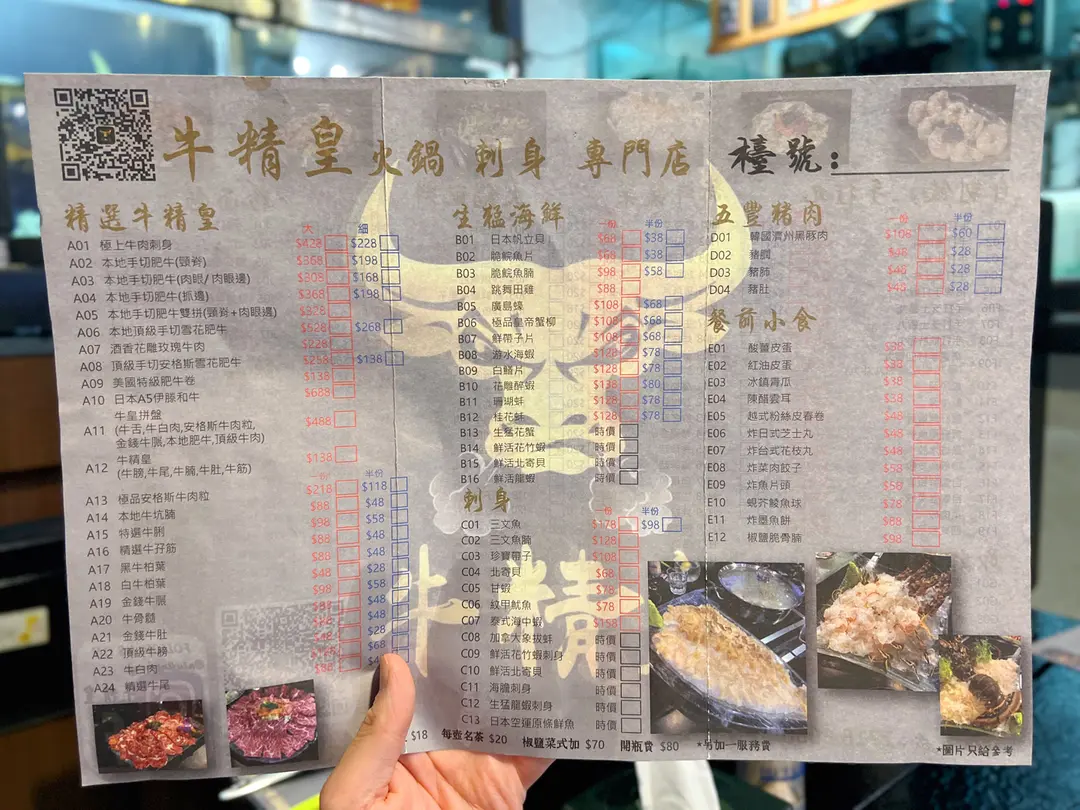 牛精皇 火鍋 刺身 專門店 檯號：
精選牛精皇
大 細
A01 極上牛肉刺身 $428 $228
A02 本地手切肥牛(頸脊) $368 $198
A03 本地手切肥牛(肉眼/肉眼邊) $308 $168
A04 本地手切肥牛(抓邊) $368 $198
A05 本地手切肥牛雙拼(頸脊+肉眼邊) $328
A06 本地頂級手切雪花肥牛 $528 $268
A07 酒香花雕玫瑰牛肉 $228
A08 頂級手切安格斯雪花肥牛 $258 $138
A09 美國特級肥牛卷 $138
A10 日本A5伊藤和牛 $688
牛皇拼盤
A11 (牛舌,牛白肉,安格斯牛肉粒, $488
金錢牛𦟌,本地肥牛,頂級牛肉)
牛精皇 $138
A12 (牛膀,牛尾,牛腩,牛肚,牛筋)
一份 半份
A13 極品安格斯牛肉粒 $218 $118
A14 本地牛坑腩 $88 $48
A15 特選牛脷 $98 $58
A16 精選牛孖筋 $88 $48
A17 黑牛柏葉 $88 $48
A18 白牛柏葉 $48 $28
A19 金錢牛𦟌 $98 $58
A20 牛骨髓 $48
A21 金錢牛肚 $48
A22 頂級牛膀 $28
A23 牛白肉 $68
A24 精選牛尾 $88
生猛海鮮
一份 半份
B01 日本帆立貝 $68 $38
B02 脆鯇魚片 $68 $38
B03 脆鯇魚腩 $98 $58
B04 跳舞田雞 $88
B05 廣島蠔 $108 $68
B06 極品皇帝蟹柳 $108 $68
B07 鮮帶子片 $108 $68
B08 游水海蝦 $128 $78
B09 白鱔片 $128 $78
B10 花雕醉蝦 $138 $80
B11 珊瑚蚌 $128 $78
B12 桂花蚌 $128 $78
B13 生猛花蟹 時價
B14 鮮活花竹蝦 時價
B15 鮮活北寄貝 時價
B16 鮮活龍蝦 時價
刺身
一份 半份
C01 三文魚 $178 $98
C02 三文魚腩 $128
C03 珍寶帶子 $108
C04 北寄貝 $68
C05 甘蝦 $78
C06 紋甲魷魚 $78
C07 泰式海中蝦 $158
C08 加拿大象拔蚌 時價
C09 鮮活花竹蝦刺身 時價
C10 鮮活北寄貝 時價
C11 海膽刺身 時價
C12 生猛龍蝦刺身 時價
C13 日本空運原條鮮魚 時價
五豐豬肉
一份 半份
D01 韓國濟州黑豚肉 $108 $60
D02 豬膶 $48 $28
D03 豬肺 $48 $28
D04 豬肚 $48 $28
餐前小食
E01 酸薑皮蛋 $38
E02 紅油皮蛋 $38
E03 冰鎮青瓜 $38
E04 陳醋雲耳 $38
E05 越式粉絲皮春卷 $48
E06 炸日式芝士丸 $48
E07 炸台式花枝丸 $48
E08 炸菜肉餃子 $58
E09 炸魚片頭 $58
E10 蜆芥鯪魚球 $78
E11 炸墨魚餅 $88
E12 椒鹽脆膏腩 $98
牛精
$18 每壺名茶 $20 椒鹽菜式加 $70 開瓶費 $80 *另加一服務費
*圖片只給參考